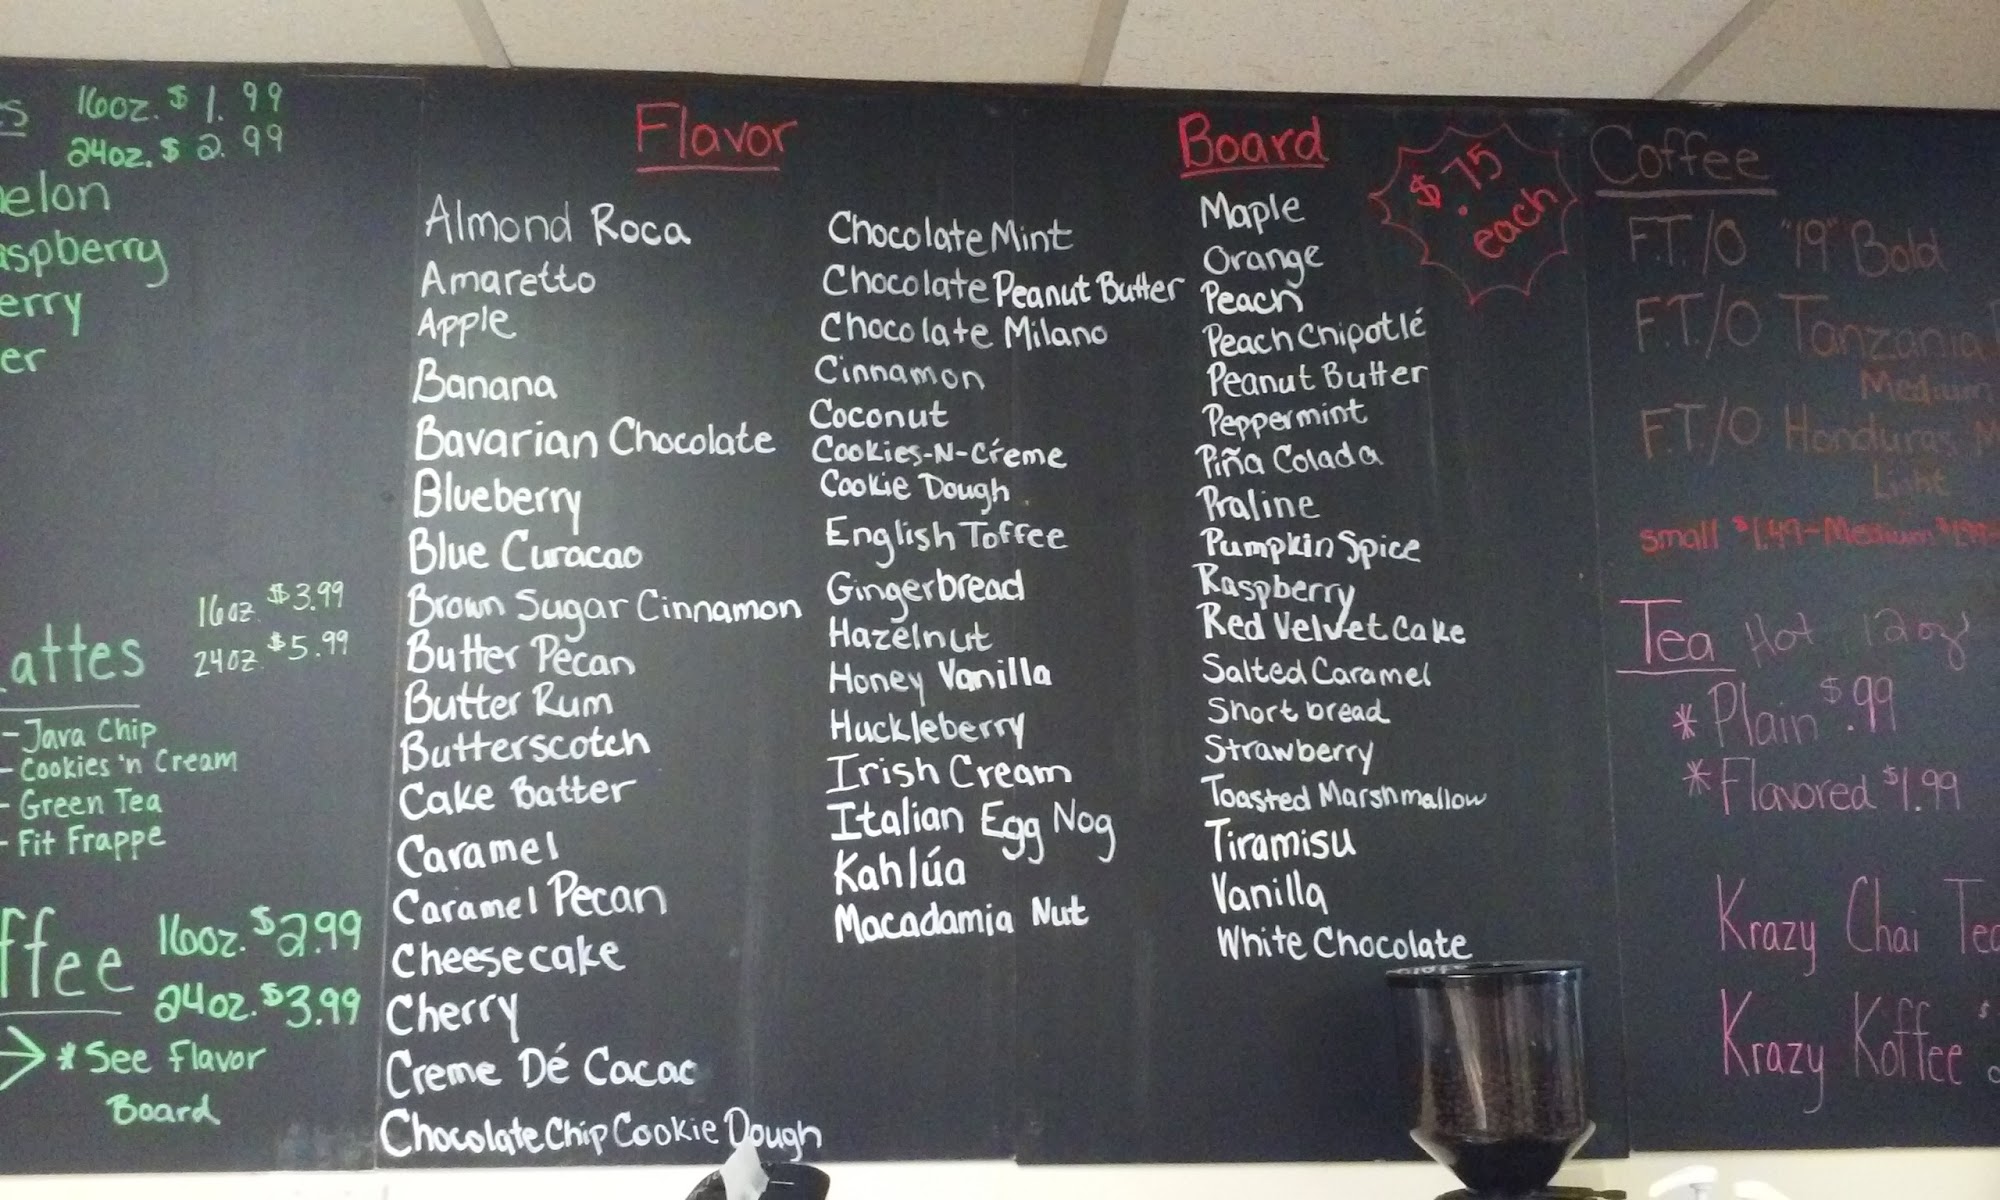 16oz. $1.99
24oz. $2.99
16oz. $3.99
24oz. $5.99
- Java Chip
- Cookies 'n Cream
- Green Tea
- Fit Frappe
16oz. $2.99
24oz. $3.99
* See Flavor
Board
Flavor Board
$.75
each
Almond Roca
Amaretto
Apple
Banana
Bavarian Chocolate
Blueberry
Blue Curacao
Brown Sugar Cinnamon
Butter Pecan
Butter Rum
Butterscotch
Cake Batter
Caramel
Caramel Pecan
Cheesecake
Cherry
Creme Dé Cacao
Chocolate Chip Cookie Dough
Chocolate Mint
Chocolate Peanut Butter
Chocolate Milano
Cinnamon
Coconut
Cookies-N-Créme
Cookie Dough
English Toffee
Gingerbread
Hazelnut
Honey Vanilla
Huckleberry
Irish Cream
Italian Egg Nog
Kahlúa
Macadamia Nut
Maple
Orange
Peach
Peach Chipotlé
Peanut Butter
Peppermint
Piña Colada
Praline
Pumpkin Spice
Raspberry
Red Velvet Cake
Salted Caramel
Shortbread
Strawberry
Toasted Marshmallow
Tiramisu
Vanilla
White Chocolate
Coffee
F.T./O "19" Bold
F.T./O Tanzania
Medium
F.T./O Honduras
Light
Small $1.49-Medium $1.99
Tea Hot 12oz
* Plain $.99
* Flavored $1.99
Krazy Chai
Krazy Koffee